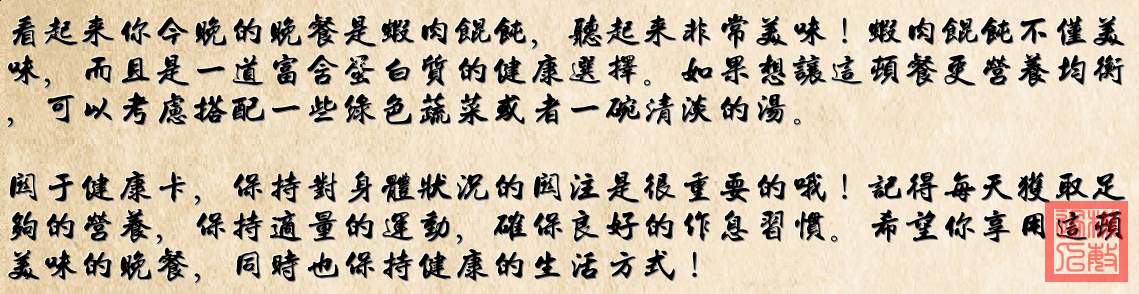 看起来你今晚的晚餐是蝦肉餛飩，聽起来非常美味！蝦肉餛飩不僅美
味，而且是一道富含蛋白質的健康選擇。如果想讓這頓餐更營養均衡
，可以考慮搭配一些綠色蔬菜或者一碗清淡的湯。
関于健康卡，保持對身體狀況的関注是很重要的哦！記得每天獲取足
夠的營養，保持適量的運動，確保良好的作息習慣。希望你享用這頓
美味的晚餐，同時也保持健康的生活方式！